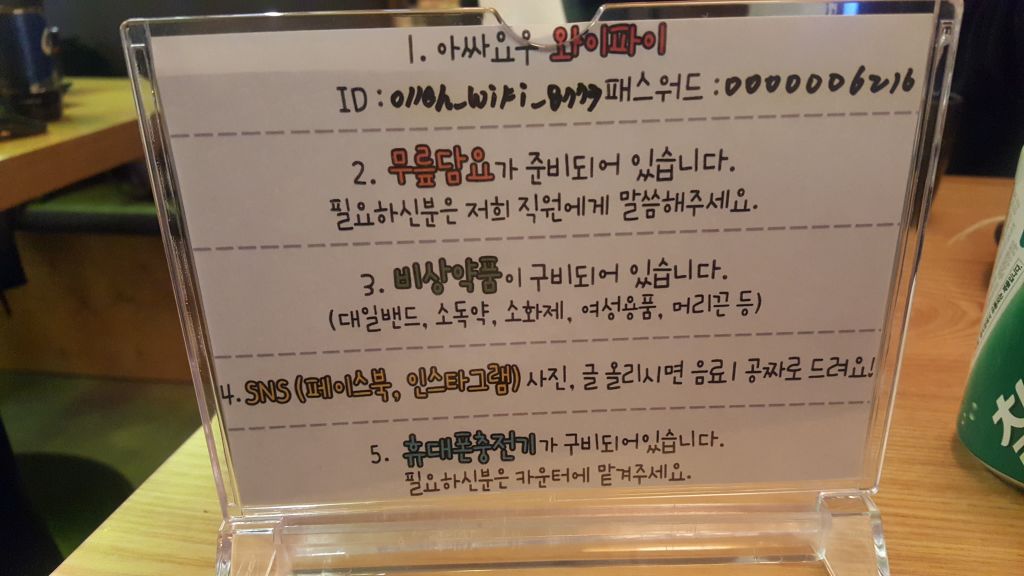 1. 아싸요우 와이파이
ID : 패스워드 : 0000006216
2. 무릎담요가 준비되어 있습니다.
필요하신분은 저희 직원에게 말씀해주세요.
3. 비상약품이 구비되어 있습니다.
(대일밴드, 소독약, 소화제, 여성용품, 머리끈 등)
4. SNS (페이스북, 인스타그램) 사진, 글 올리시면 음료1 공짜로 드려요!
5. 휴대폰충전기가 구비되어있습니다.
필요하신분은 카운터에 맡겨주세요.